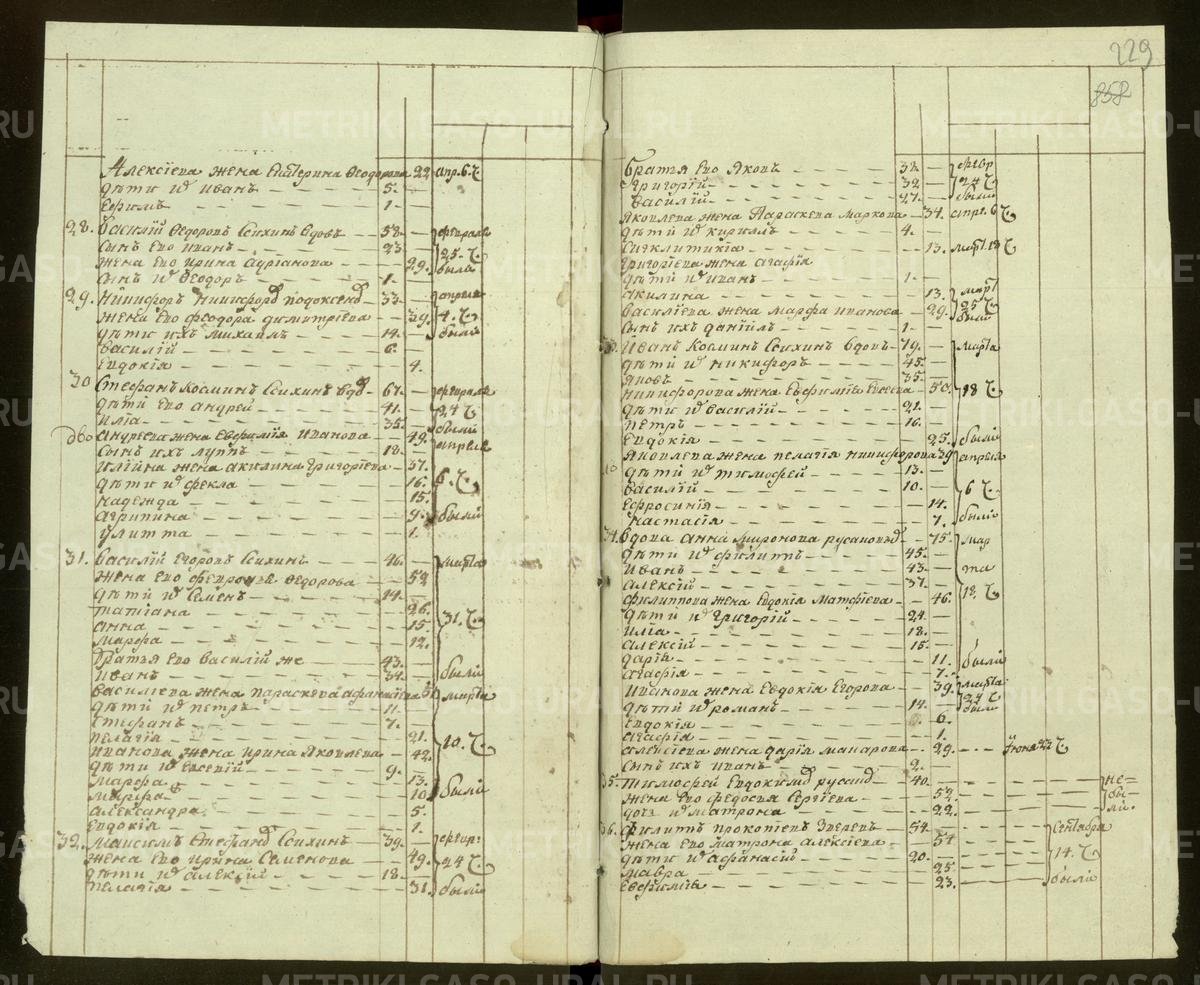 229
858
Алексіева жена Екатерина Ѳеодорова 22 апр. 6 ч
дѣти ихъ Иванъ 5.
Ефимъ 1
28. Василій Ѳедоровъ вдовъ 58. февраля
Сынъ его Иванъ 23 25. ч
жена его Ирина 29. были
Сынъ ихъ Ѳеодоръ 1
29. Никифоръ Никифоровъ 33 апреля
жена его Феодора Димитріева 39. 4. ч
дѣти ихъ Михаилъ 14. были
Василій 6.
Евдокія 4.
30 Стефанъ Косминъ вдовъ 67. февраля
дѣти его Андрей 41. 24 ч
Илія 35. были
Андреева жена Евфимія Иванова 49. апреля
Сынъ ихъ Луппъ 18.
Иліина жена Акилина Григоріева 37.
дѣти ихъ Фекла 16. 6. ч
Надежда 15.
Агрипина 9. были
Улитта 1.
31. Василій Егоровъ 46. марта
жена его Феврониѣ Ѳедорова 52
дѣти ихъ Семенъ 14
Татіана 26.
Анна 15. 31. ч
Марфа 12.
Братья его Василій же 43.
Иванъ 34. были
Василіева жена Параскева Афанасіева марта
дѣти ихъ Петръ 11.
Стефанъ 7.
Пелагія 21.
Иванова жена Ирина Яковлева 42. 10. ч
дѣти ихъ Евсевій 9.
Марфа 13.
Марфа 10 были
Александра 5.
Евдокія 1.
32. Максимъ Стефановъ 39. февр:
жена его Ирина Семенова 49. 24 ч
дѣти ихъ Алексій 18.
Пелагія 31. были
Братья его Яковъ 38. февр
Григорій 32 24 ч
Василій 27. были
Яковлева жена Параскева Маркова 34. апрл. 6 ч
дѣти ихъ Кирилъ 4.
Сигклитикіа 13. март. 18 ч
Григоріева жена Агафія
дѣти ихъ Иванъ 1
Акилина 13. март
Василіева жена Марфа Иванова 29. 25 ч
Сынъ ихъ Даніилъ 1 были
Иванъ Косминъ вдовъ 79. марта
дѣти ихъ Никифоръ 45.
Яковъ 35.
Никифорова жена Евфиміѣ Евсеева 50. 18 ч
дѣти ихъ Василій 21.
Петръ 16.
Евдокія 25. были
Яковлева жена Пелагія Никифорова 39 апреля
дѣти ихъ Тимофей 13.
Василій 10. 6 ч
Ефросинія 14.
Настасія 7. были
34. Вдова Анна Миронова 75. мар
дѣти ихъ Филиппъ 45.
Иванъ 43. та
Алексій 37
Филиппова жена Евдокія Матфіева 46. 18. ч
дѣти ихъ Григорій 24.
Илія 18.
Алексій 15.
Дарія 11. были
Агафія 7.
Иванова жена Евдокія Егорова 39. марта
дѣти ихъ Романъ 14. 24 ч
Евдокія 6. были
Агафія 1.
Алексіева жена Дарія Макарова 29. Июня 22 ч
Сынъ ихъ Иванъ 2.
35. Тимофей Евдокимовъ 40. не=
жена его Федосья Сергіева 52. бы=
дочь ихъ Матрона 22. ли.
36. Филипъ Прокопіевъ Зверевъ 54. Сентабра
жена его Матрона Алексіева 54
дѣти ихъ Афанасій 20. 14. ч
Мавра 25.
Евфиміѣ 23. были